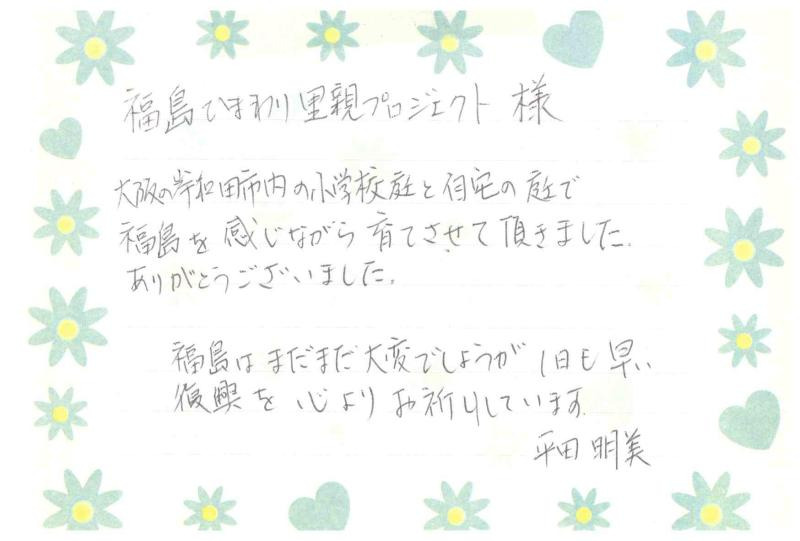 福島ひまわり里親プロジェクト 様
大阪の岸和田市内の小学校庭と自宅の庭で
福島を感じながら育てさせて頂きました。
ありがとうございました。
福島はまだまだ大変でしょうが1日も早い
復興を心よりお祈りしています。
平田明美